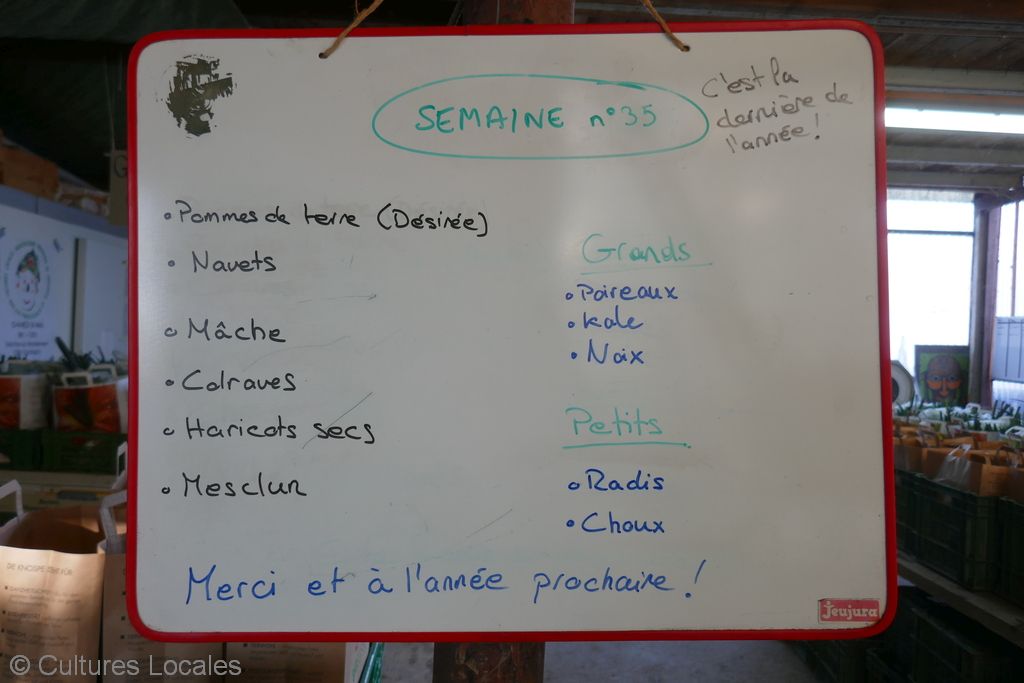 SEMAINE n°35
c'est la
dernière de
l'année!
• Pommes de terre (Désirée)
• Navets
• Mâche
• Colraves
• Haricots secs
• Mesclun
Grands
• Poireaux
• Kale
• Noix
Petits
• Radis
• Choux
Merci et à l'année prochaine!
Jeujura
DIE KNOSPE STEHT FÜR:
© Cultures Locales